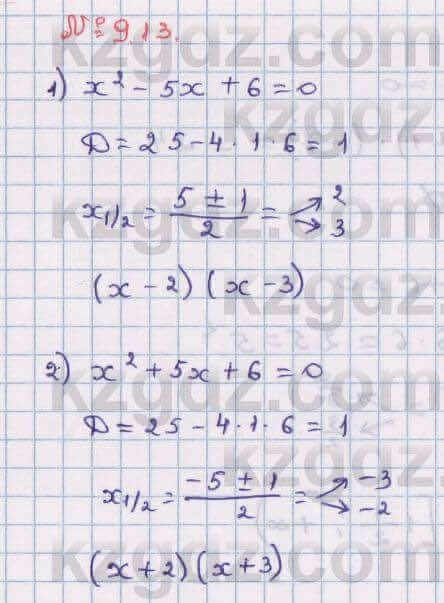 № 9.13.
1) x² - 5x + 6 = 0
D = 25 - 4 · 1 · 6 = 1
x₁/₂ = (5 ± 1)/2 = ↗ 2 ↘ 3
(x - 2) (x - 3)
2) x² + 5x + 6 = 0
D = 25 - 4 · 1 · 6 = 1
x₁/₂ = (-5 ± 1)/2 = ↗ -3 ↘ -2
(x + 2) (x + 3)
kzgdz.com